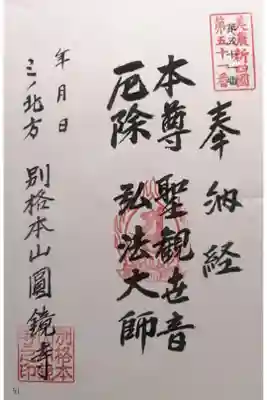 美濃新四國
第五十一番
奉納経
本尊 聖観世音
厄除 弘法大師
年月日
ミノ北方 別格本山圓鏡寺
51